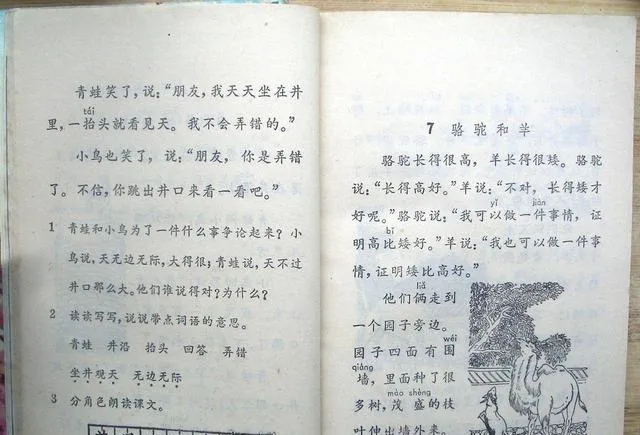 青蛙笑了，说：“朋友，我天天坐在井
tái
里，一抬头就看见天。我不会弄错的。”
小鸟也笑了，说：“朋友，你是弄错
了。不信，你跳出井口来看一看吧。”
1 青蛙和小鸟为了一件什么事争论起来？小
鸟说，天无边无际，大得很；青蛙说，天不过
井口那么大。他们谁说得对？为什么？
2 读读写写，说说带点词语的意思。
青蛙 井沿 抬头 回答 弄错
坐井观天 无边无际
3 分角色朗读课文。
7 骆驼和羊
骆驼长得很高，羊长得很矮。骆驼
说：“长得高好。”羊说：“不对，长得矮才
yǐ jiàn
好呢。”骆驼说：“我可以做一件事情，证
bǐ
明高比矮好。”羊说：“我也可以做一件事
情，证明矮比高好。”
liǎ
他们俩走到
一个园子旁边。
wéi
园子四面有围
qiáng
墙，里面种了很
mào shèng
多树，茂盛的枝
叶伸出墙外来。